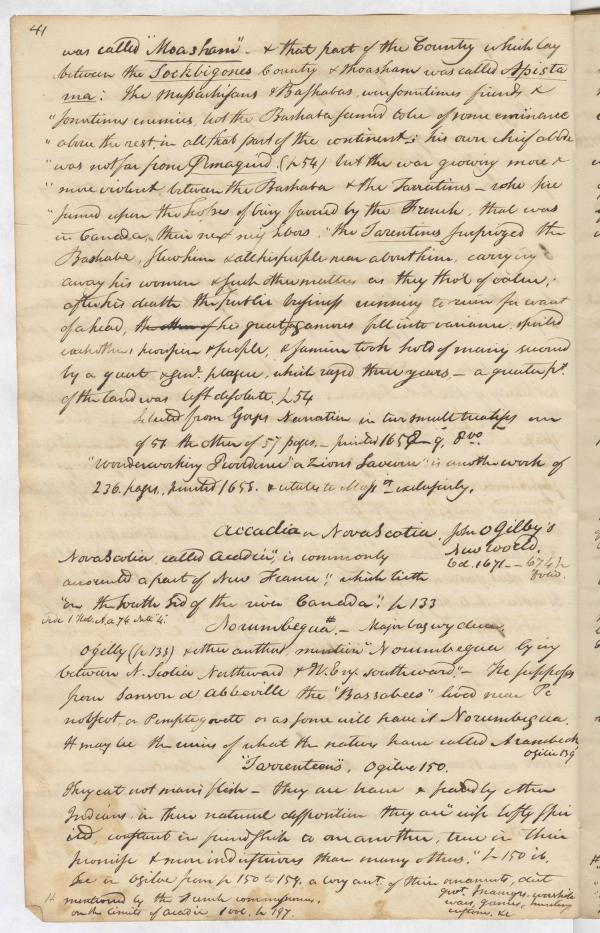 41
was called "Moasham" - & that part of the Country which lay
between the Sockbigones County & Moasham was called Apista
ma: The Massachisans & Bashabas, were sometimes friends &
"sometimes enemies, but the Bashaba seemed to be of some eminence
"above the rest, in all that part of the continent; his own chief abode
"was not far from Pemaquid. (p 54) but the war growing more &
"more violent between the Bashaba & the Tarratines - who pre
"sumed upon the hopes of being favored by the French, that was
in Canada, their next neighbors. "The Tarentines surprized the
Bashaba, slew him & all his people near about him, carrying
away his women & such other matters as they thot of value;
after his death the public business running to ruin for want
of a head, the other of his great sagamores fell into variance, spoiled
each other, people, & famine took hold of many, second
by a great & genl. plague, which raged three years - a greater pt.
of the land was left desolate. p 54
Selected from Gorges Narrative in two small treatises one
of 51 the other of 57 pages - printed 1658 - 8vo
"Wonderworking Providence" a Zions Saviour" is another work of
236 pages, printed 1653. & relates to Mass. exclusively.
Accadia or Nova Scotia. John Ogilby's
New World.
Ed. 1671 - 674 p
Folio.
Nova Scotia, called Acadia, "is commonly
accounted a part of New France," which lieth
"on the South Sid of the river Canada". p 133
Norumbegua -
Ogilby (p 138) & other authors mention "Norumbegua lying
between N. Scotia Northward & N. Eng. southward." - He supposes
from Sanson d'Abbeville the "Bassabees" lived near Pe
nobscot, or Pemptegovett or as some will have it Norumbegua.
It may be the ruins of what the natives have called Arambeck
Ogilvie 139
"Tarrenteens", Ogilve 150.
They eat not mans flesh - They are brave & feared by other
Indians, in their natural disposition they are "wise lofty spiri
ited constant in friendship to one another, true in their
promise & more industrious than many others." p 150 ib.
See in Ogilve from p 150 to 159. a long act. of their ornaments, diet
govt. marriages, worship
wars, games, hunting
customs, &c
mentioned by the French commissioners.
on the limits of Acadie 1 vol. p 197.